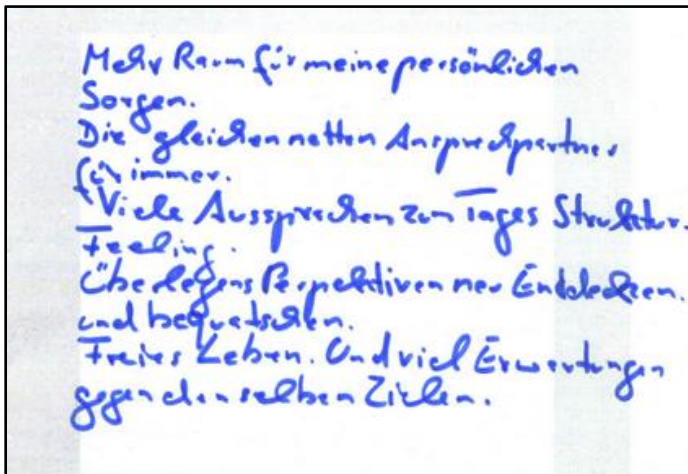 Mehr Raum für meine persönlichen
Sorgen.
Die gleichen netten Ansprechpartner
für immer.
Viele Aussprechen zum Tages Struktur.
Feeling.
Überlegens Perspektiven neu Entdecken.
und bequatschen.
Freies Leben. Und viel Erwartungen
gegen den selben Zielen.